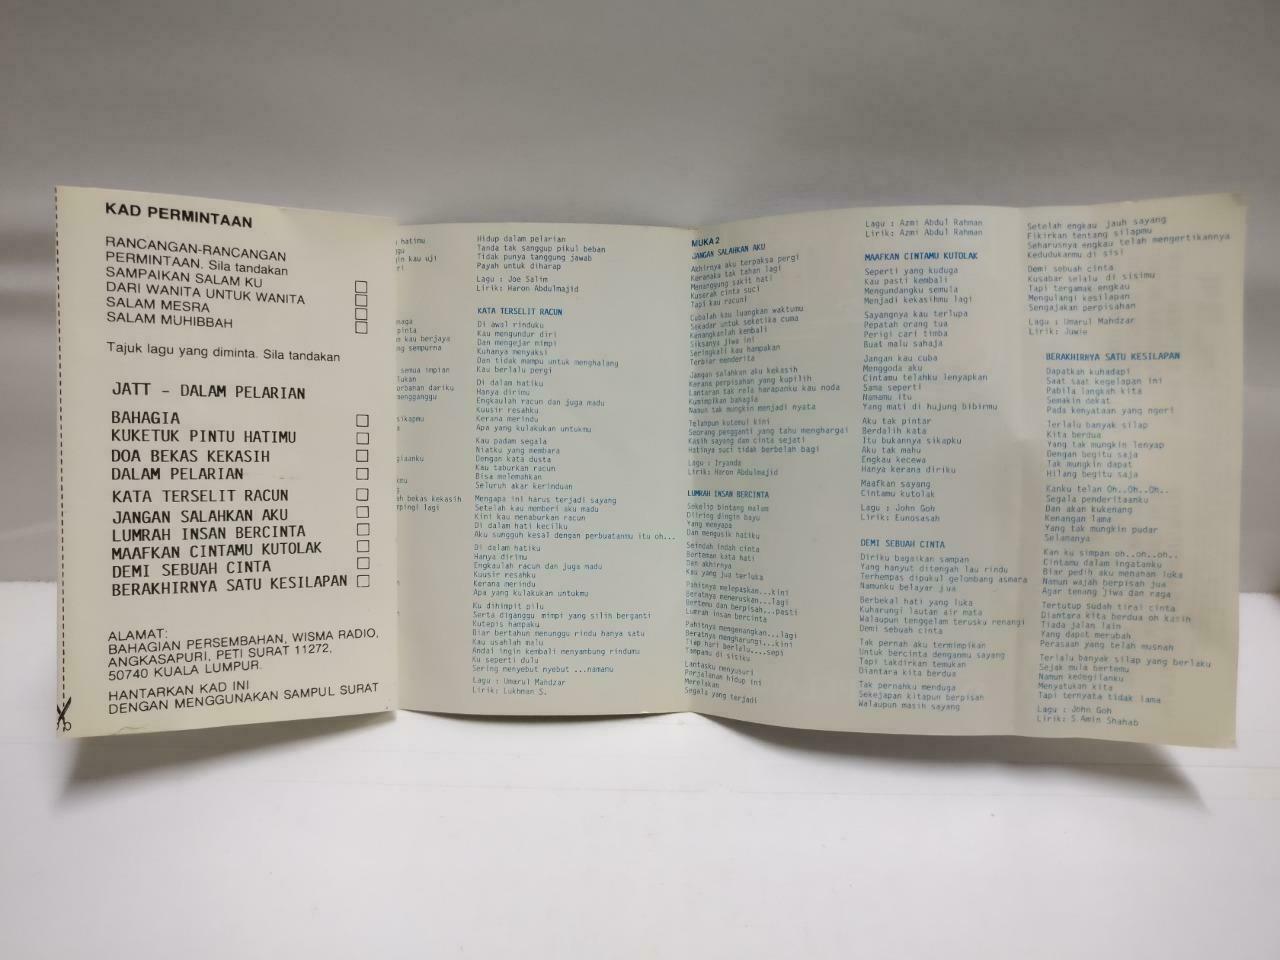 KAD PERMINTAAN
RANCANGAN-RANCANGAN
PERMINTAAN. Sila tandakan
SAMPAIKAN SALAM KU
DARI WANITA UNTUK WANITA
SALAM MESRA
SALAM MUHIBBAH
Tajuk lagu yang diminta. Sila tandakan
JATT - DALAM PELARIAN
BAHAGIA
KUKETUK PINTU HATIMU
DOA BEKAS KEKASIH
DALAM PELARIAN
KATA TERSELIT RACUN
JANGAN SALAHKAN AKU
LUMRAH INSAN BERCINTA
MAAFKAN CINTAMU KUTOLAK
DEMI SEBUAH CINTA
BERAKHIRNYA SATU KESILAPAN
ALAMAT:
BAHAGIAN PERSEMBAHAN, WISMA RADIO,
ANGKASAPURI, PETI SURAT 11272,
50740 KUALA LUMPUR.
HANTARKAN KAD INI
DENGAN MENGGUNAKAN SAMPUL SURAT
hatimu
kau uji
kau berjaya
sempurna
semua impian
dariku
bekas kekasih
lagi
Hidup dalam pelarian
Tanda tak sanggup pikul beban
Tidak punya tanggung jawab
Payah untuk diharap
Lagu : Joe Salim
Lirik: Haron Abdulmajid
KATA TERSELIT RACUN
Di awal rinduku
Kau mengundur diri
Dan mengejar mimpi
Kuhanya menyaksi
Dan tidak mampu untuk menghalang
Kau berlalu pergi
Di dalam hatiku
Hanya dirimu
Engkaulah racun dan juga madu
Kuusir resahku
Kerana merindu
Apa yang kulakukan untukmu
Kau padam segala
Niatku yang membara
Dengan kata dusta
Kau taburkan racun
Bisa melemahkan
Seluruh akar kerinduan
Mengapa ini harus terjadi sayang
Setelah kau memberi aku madu
Kini kau menaburkan racun
Di dalam hati kecilku
Aku sungguh kesal dengan perbuatanmu itu oh...
Di dalam hatiku
Hanya dirimu
Engkaulah racun dan juga madu
Kuusir resahku
Kerana merindu
Apa yang kulakukan untukmu
Ku dihimpit pilu
Serta diganggu mimpi yang silih berganti
Kutepis hampaku
Biar bertahun menunggu rindu hanya satu
Kau usahlah malu
Andai ingin kembali menyambung rindumu
Ku seperti dulu
Sering menyebut nyebut ...namanu
Lagu : Umarul Mahdzar
Lirik : Lukhman S.
MUKA 2
JANGAN SALAHKAN AKU
Akhirnya aku terpaksa pergi
Keranaka tak tahan lagi
Menanggung sakit hati
Kuserak cinta suci
Tapi kau racuni
Cubalah kau luangkan waktumu
Sekadar untuk seketika cuma
Kenangkanlah kembali
Siksanya jiwa ini
Seringkali kau hampakan
Terbiar menderita
Jangan salahkan aku kekasih
Kerana perpisahan yang kupilih
Lantaran tak rela harapanku kau noda
Kumimpikan bahagia
Namun tak mungkin menjadi nyata
Telahpun kutemui kini
Seorang pengganti yang tahu menghargai
Kasih sayang dan cinta sejati
Hatinya suci tidak berbelah bagi
Lagu : Iryanda
Lirik: Haron Abdulmajid
LUMRAH INSAN BERCINTA
Sekelip bintang malam
Diiring dingin bayu
Yang menyapa
Dan mengusik hatiku
Seindah indah cinta
Berteman kata hati
Dan akhirnya
Kau yang jua terluka
Pahitnya melepaskan...kini
Beratnya meneruskan...lagi
Bertemu dan berpisah...pasti
Lumrah insan bercinta
Pahitnya mengenangkan...lagi
Beratnya mengharungi...kini
Tiap hari berlalu....sepi
Tanpamu di sisiku
Lantasku menyusuri
Perjalanan hidup ini
Merelakan
Segala yang terjadi
Lagu : Azmi Abdul Rahman
Lirik: Azmi Abdul Rahman
MAAFKAN CINTAMU KUTOLAK
Seperti yang kuduga
Kau pasti kembali
Mengundangku semula
Menjadi kekasihmu lagi
Sayangnya kau terlupa
Pepatah orang tua
Perigi cari timba
Buat malu sahaja
Jangan kau cuba
Menggoda aku
Cintamu telahku lenyapkan
Sama seperti
Namamu itu
Yang mati di hujung bibirmu
Aku tak pintar
Berdalih kata
Itu bukannya sikapku
Aku tak mahu
Engkau kecewa
Hanya kerana diriku
Maafkan sayang
Cintamu kutolak
Lagu : John Goh
Lirik: Eunosasah
DEMI SEBUAH CINTA
Diriku bagaikan sampan
Yang hanyut ditengah lau rindu
Terhempas dipukul gelombang asmara
Namunku belayar jua
Berbekal hati yang luka
Kuharungi lautan air mata
Walaupun tenggelam terusku renangi
Demi sebuah cinta
Tak pernah aku termimpikan
Untuk bercinta denganmu sayang
Tapi takdirkan temukan
Diantara kita berdua
Tak pernahku menduga
Sekejapan kitapun berpisah
Walaupun masih sayang
Setelah engkau jauh sayang
Fikirkan tentang silapmu
Seharusnya engkau telah mengertikannya
Kedudukanmu di sisi
Demi sebuah cinta
Kusabar selalu di sisimu
Tapi tergamak engkau
Mengulangi kesilapan
Sengajakan perpisahan
Lagu : Umarul Mahdzar
Lirik: Juwie
BERAKHIRNYA SATU KESILAPAN
Dapatkah kuhadapi
Saat saat kegelapan ini
Pabila langkah kita
Semakin dekat
Pada kenyataan yang ngeri
Terlalu banyak silap
Kita berdua
Yang tak mungkin lenyap
Dengan begitu saja
Tak mungkin dapat
Hilang begitu saja
Kanku telan Oh..Oh..Oh..
Segala penderitaanku
Dan akan kukenang
Kenangan lama
Yang tak mungkin pudar
Selamanya
Kan ku simpan oh..oh..oh..
Cintamu dalam ingatanku
Biar pedih aku menahan luka
Namun wajah berpisah jua
Agar tenang jiwa dan raga
Tertutup sudah tirai cinta
Diantara kita berdua oh kasih
Tiada jalan lain
Yang dapat merubah
Perasaan yang telah musnah
Terlalu banyak silap yang berlaku
Sejak mula bertemu
Namun kedegilanku
Menyatukan kita
Tapi ternyata tidak lama
Lagu : John Goh
Lirik: S.Amin Shahab